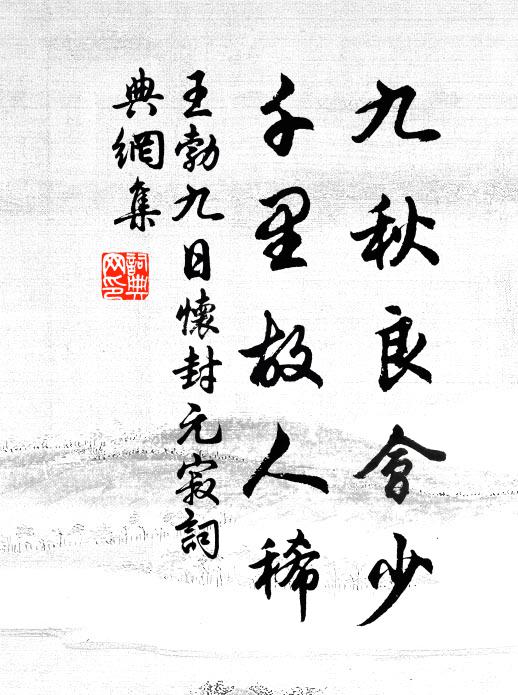 九秋良會少
千里故人稀
王勃九日懷封元寂詞
典網集
詞典
网印